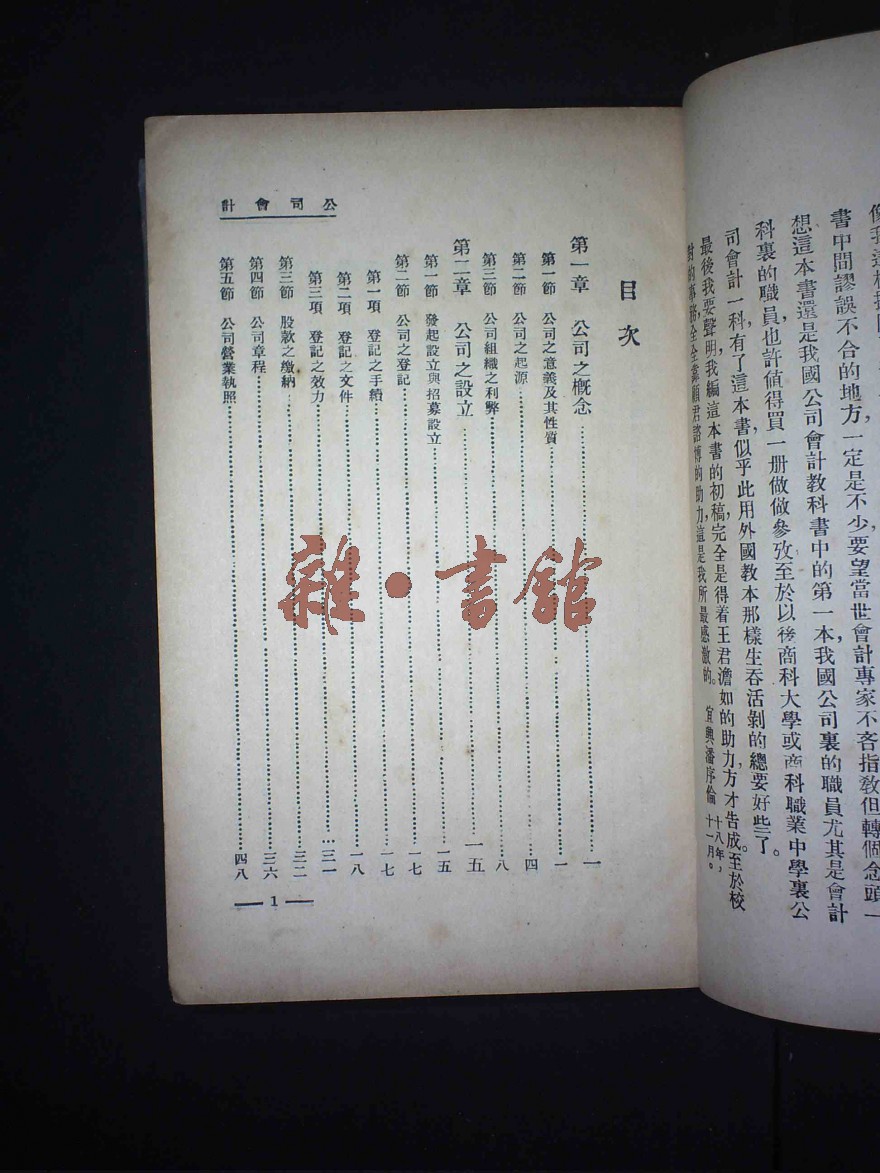 像我這樣
書中間謬誤不合的地方，一定是不少，要望當世會計專家不吝指教但轉個念頭一
想這本書還是我國公司會計教科書中的第一本，我國公司裏的職員尤其是會計
科裏的職員，也許值得買一册做做參攷至於以後商科大學或商科職業中學裏公
司會計一科，有了這本書似乎此用外國教本那樣生吞活剝的總要好些了。
最後我要聲明，我編這本書的初稿，完全是得着王君澹如的助力，方才告成。至於校
對的事務，全全靠顧君詻博的助力，這是我所最感激的。 宜興潘序倫 十八年，十一月。
公司會計
目次
第一章 公司之概念……一
第一節 公司之意義及其性質……一
第二節 公司之起源……四
第三節 公司組織之利弊……八
第二章 公司之設立……一五
第一節 發起設立與招募設立……一五
第二節 公司之登記……一七
第一項 登記之手續……一七
第二項 登記之文件……一八
第三項 登記之效力……三一
第三節 股款之繳納……三二
第四節 公司章程……三六
第五節 公司營業執照……四八
— 1 —
雜·書館